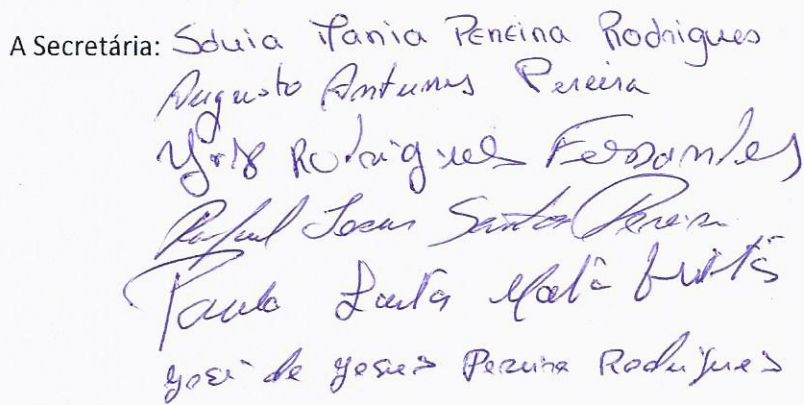 A Secretária: Sónia Mania Pereira Rodrigues
Augusto Antunes Pereira
Rodrigues Fernandes
Rafael Santos Pereira
Paulo
José de Jesus Pereira Rodrigues